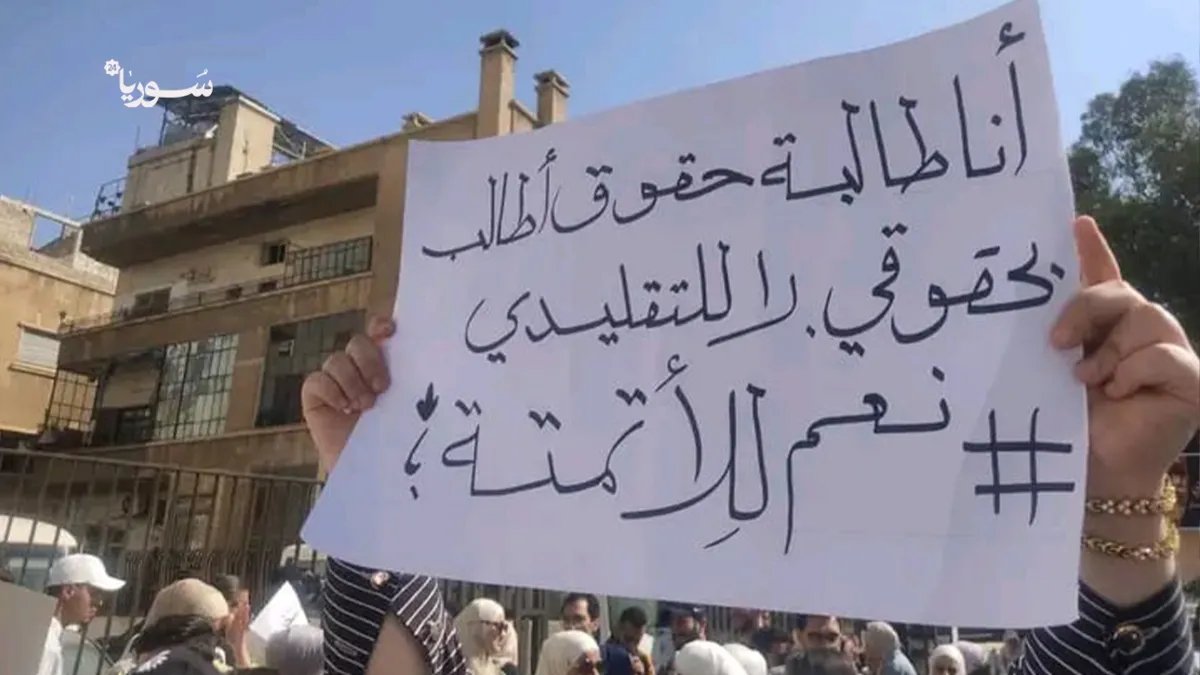 سُوريَا 24
أنا طالبة حقوق أطالب
بحقوقي. لا للتقليدي
# نعم لِلأتمتة؛